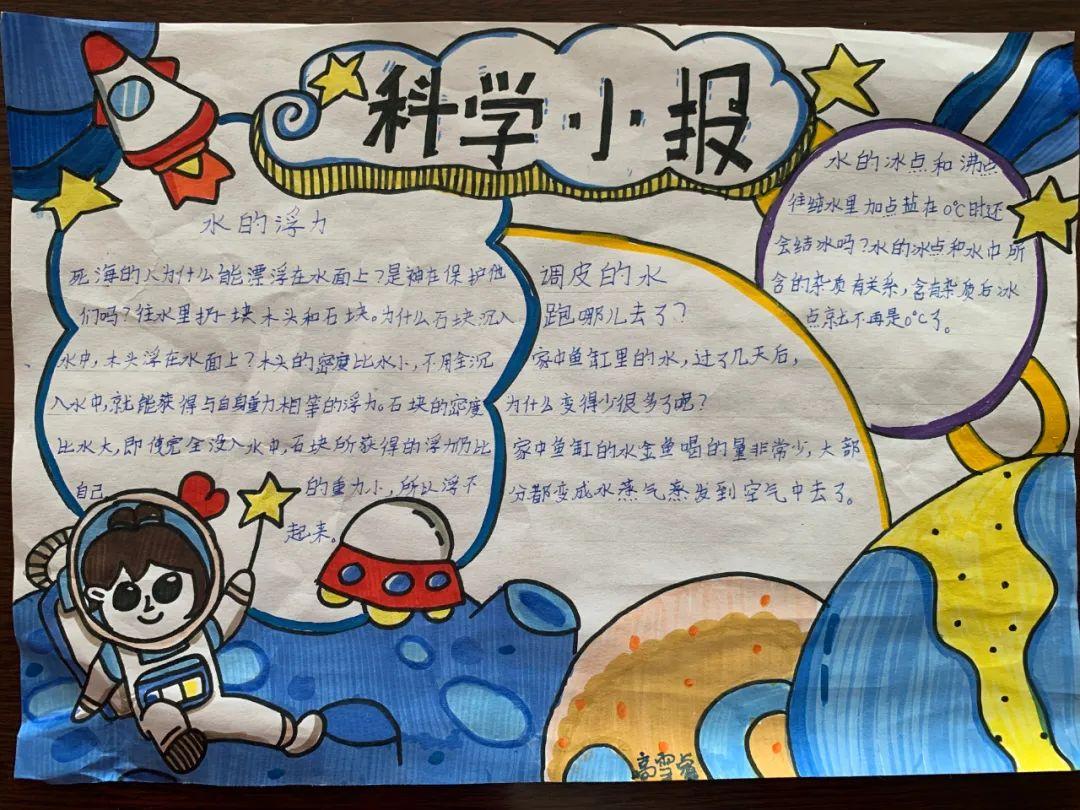 科学小报
水的浮力
死海的人为什么能漂浮在水面上?是神在保护他
们吗?往水里扔一块木头和石块。为什么石块沉入
水中,木头浮在水面上?木头的密度比水小,不用全沉
入水中,就能获得与自身重力相等的浮力。石块的密度
比水大,即使完全没入水中,石块所获得的浮力仍比
自己 的重力小,所以浮不
起来。
调皮的水
跑哪儿去了?
家中鱼缸里的水,过了几天后,
为什么变得少很多了呢?
家中鱼缸的水金鱼喝的量非常少,大部
分都变成水蒸气蒸发到空气中去了。
水的冰点和沸点
往纯水里加点盐在0℃时还
会结冰吗?水的冰点和水中所
含的杂质有关系,含有杂质后冰
点就不再是0℃了。
高雪